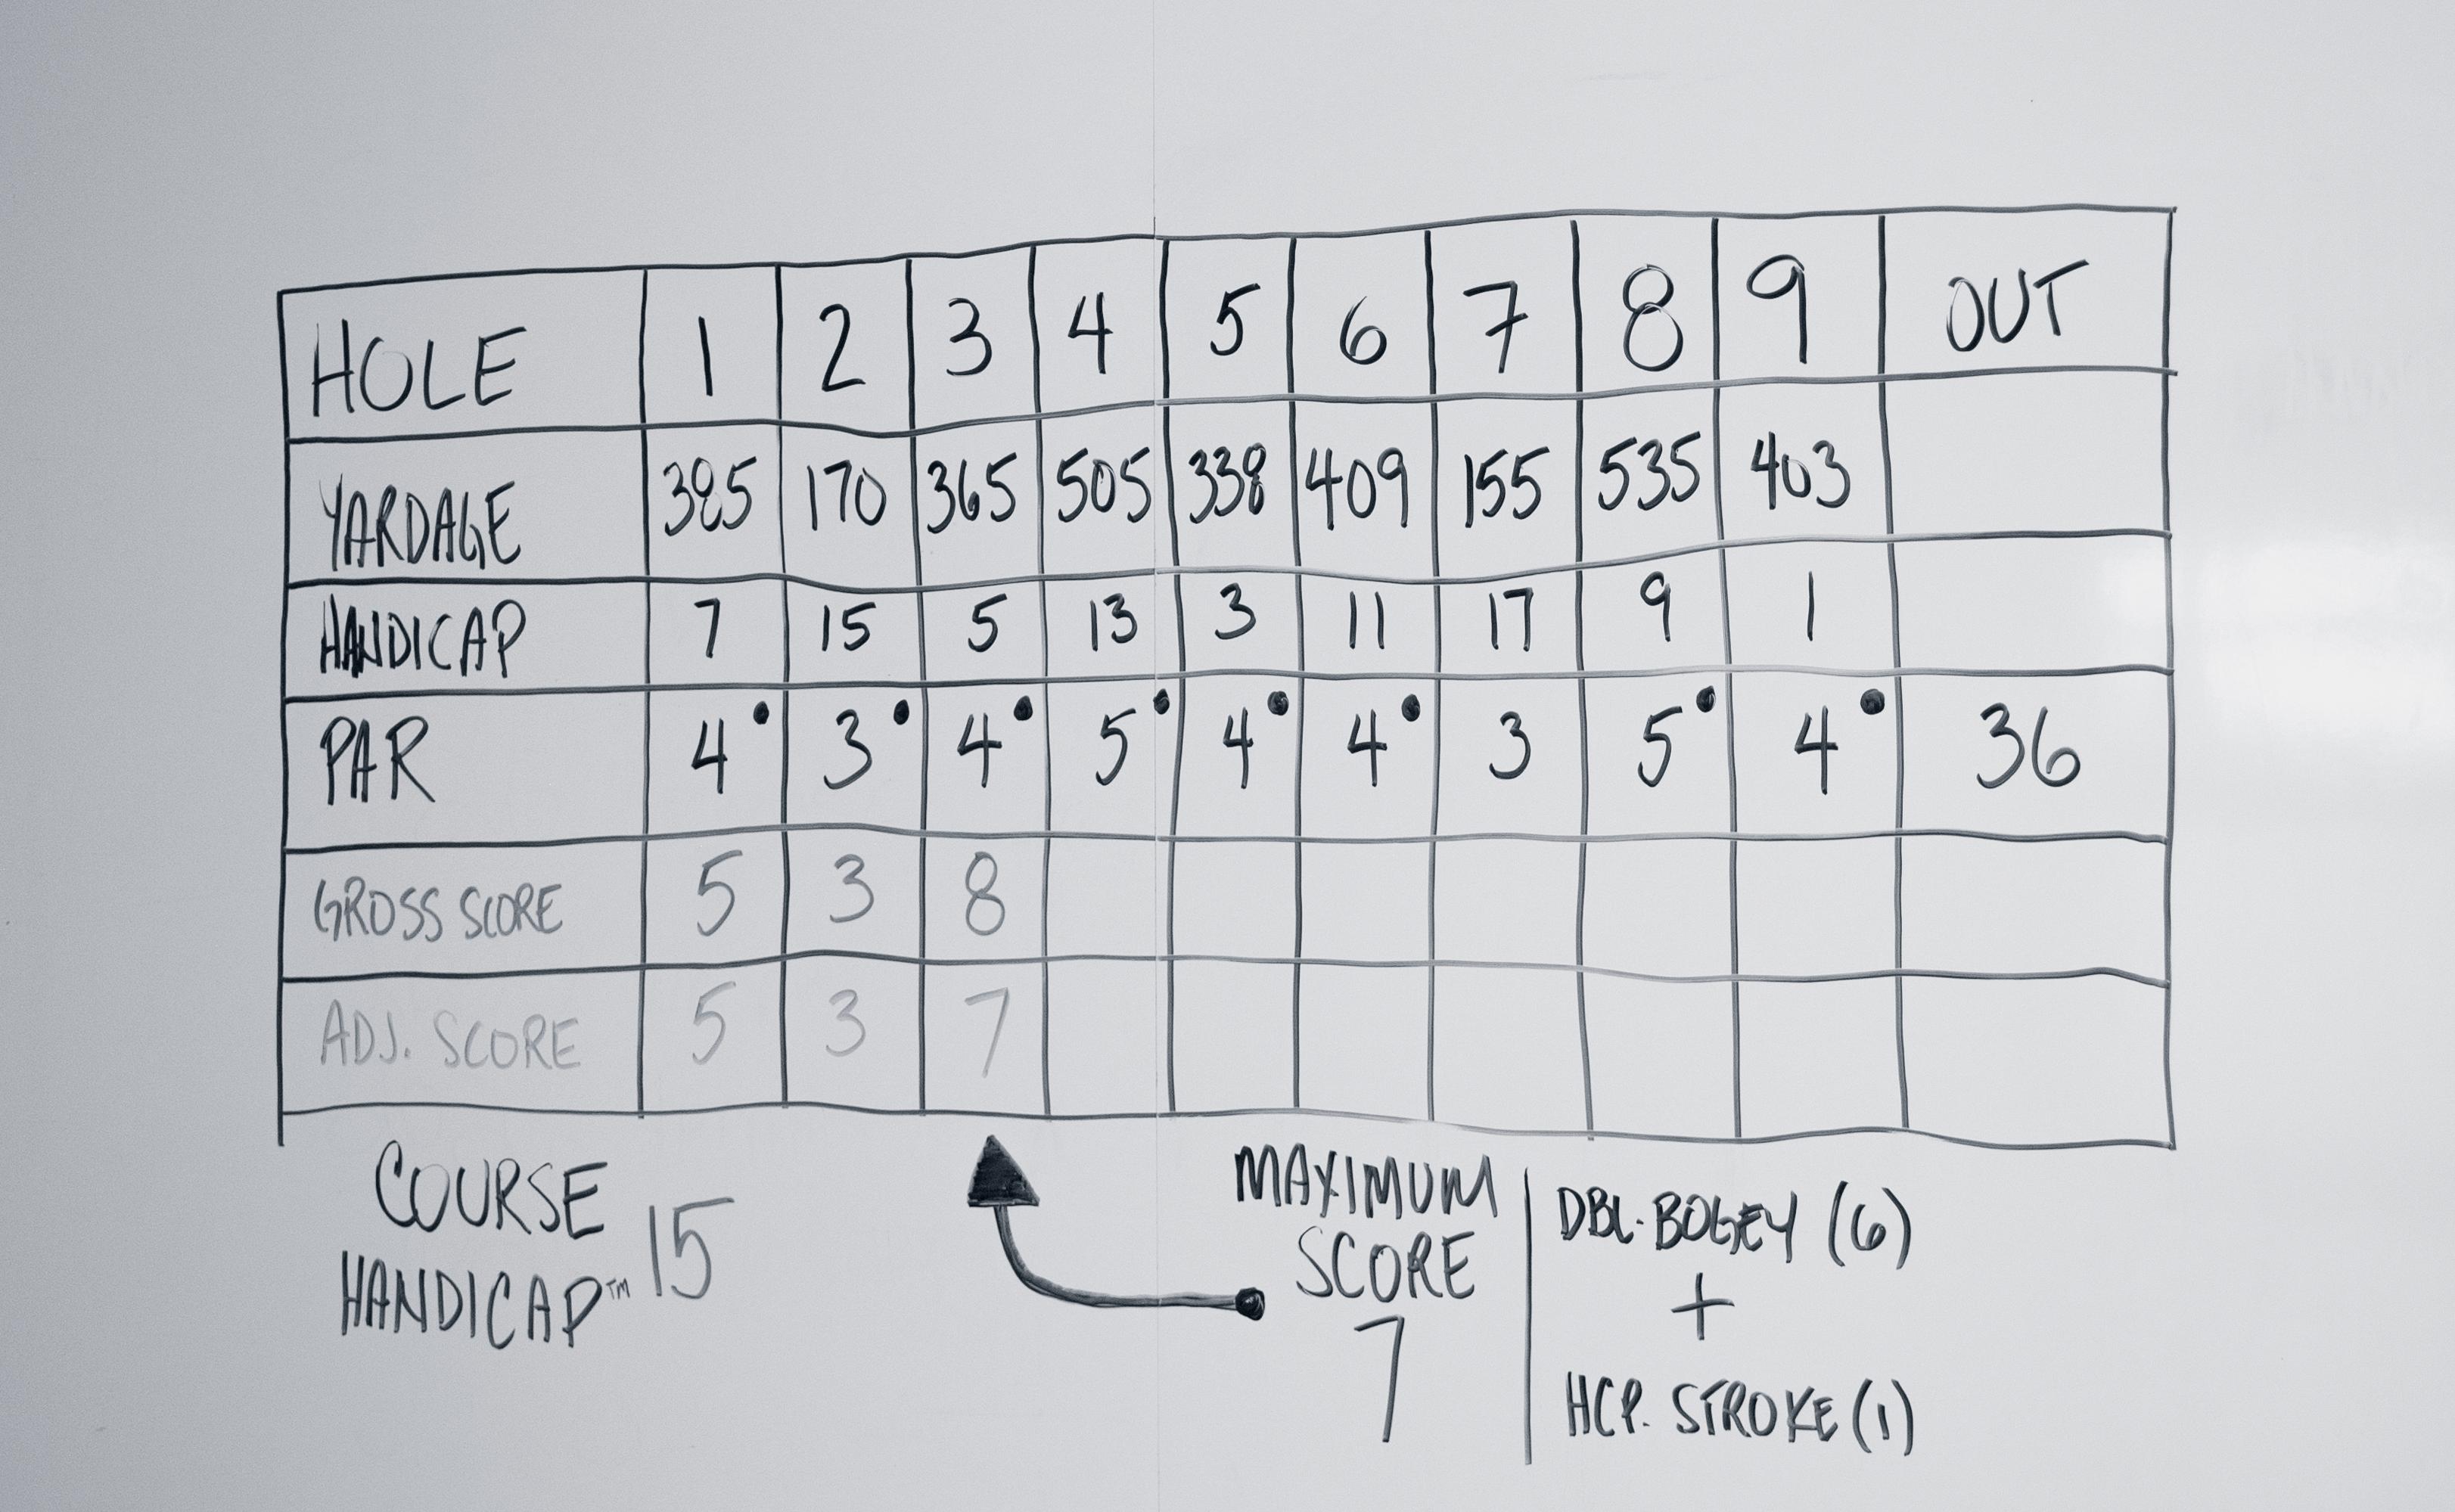 HOLE 1 2 3 4 5 6 7 8 9 OUT
YARDAGE 385 170 365 505 338 409 155 535 403
HANDICAP 7 15 5 13 3 11 17 9 1
PAR 4• 3• 4• 5• 4• 4• 3 5• 4• 36
GROSS SCORE 5 3 8
ADJ. SCORE 5 3 7
COURSE
HANDICAP™ 15
MAXIMUM
SCORE
7
DBL. BOGEY (6)
+
HCP. STROKE (1)